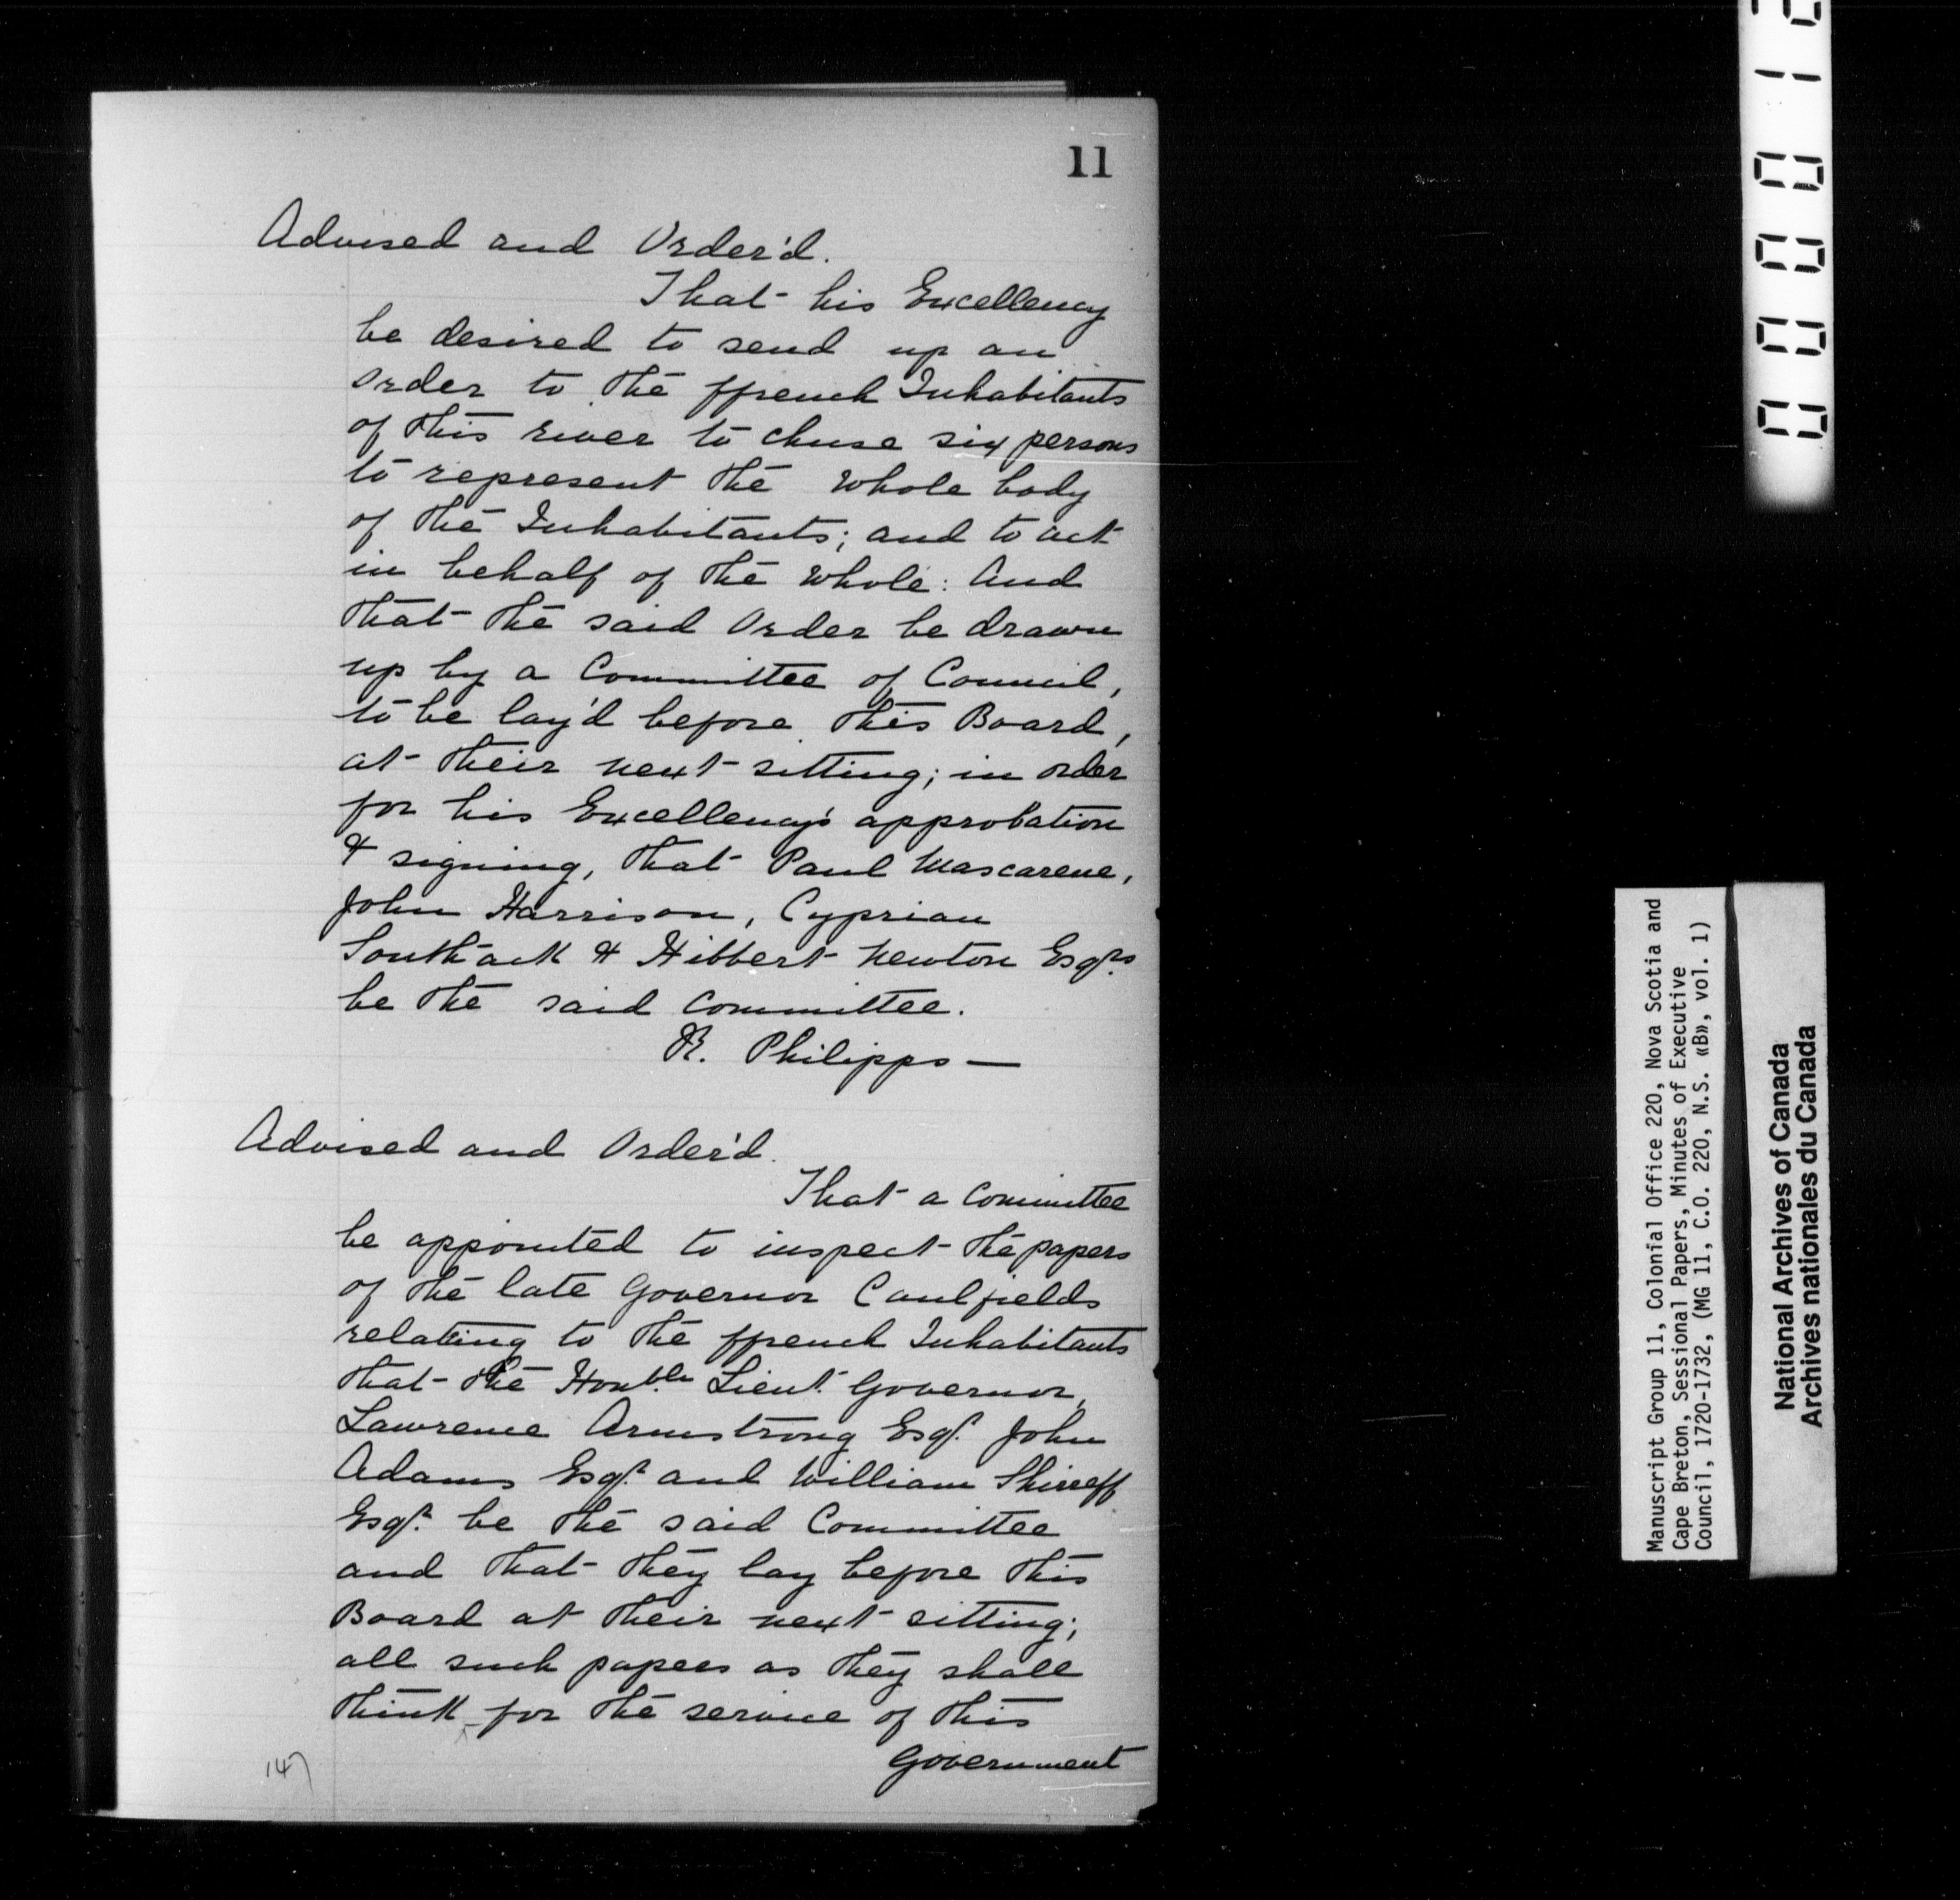 11
Advised and Order'd.
That his Excellency
be desired to send up an
order to the ffrench Inhabitants
of this river to chuse six persons
to represent the Whole body
of the Inhabitants; and to act
in behalf of the Whole: And
that the said Order be drawn
up by a Committee of Council,
to be lay'd before this Board,
at their next sitting; in order
for his Excellency's approbation
& signing, that Paul Mascarene,
John Harrison, Cyprian
Southack & Hibbert Newton Esqrs
be the said Committee.
R. Philipps —
Advised and Order'd.
That a Committee
be appointed to inspect the papers
of the late Governor Caulfields
relating to the ffrench Inhabitants
that the Honble Lieut. Governor,
Lawrence Armstrong Esqr. John
Adams Esqr. and William Shirreff
Esqr. be the said Committee
and that they lay before this
Board at their next sitting;
all such papers as they shall
think for the service of this
Government
147
000012
Manuscript Group 11, Colonial Office 220, Nova Scotia and
Cape Breton, Sessional Papers, Minutes of Executive
Council, 1720-1732, (MG 11, C.O. 220, N.S. «B», vol. 1)
National Archives of Canada
Archives nationales du Canada